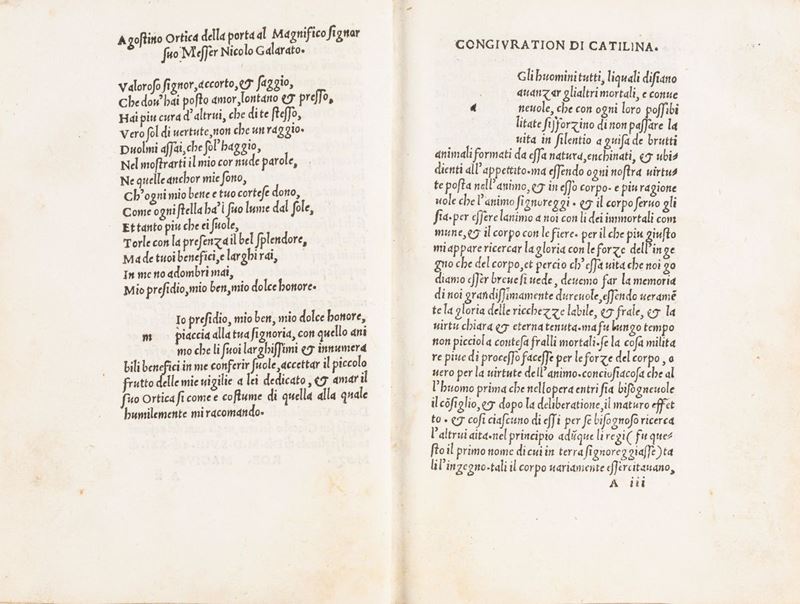 Agostino Ortica della porta al Magnifico signor
suo Messer Nicolo Galarato.
Valoroso signor, accorto, & saggio,
Che dou' hai posto amor, lontano & presso,
Hai piu cura d'altrui, che di te stesso,
Vero sol di uertute, non che un raggio.
Duolmi assai, che sol' haggio,
Nel mostrarti il mio cor nude parole,
Ne quelle anchor mie sono,
Ch'ogni mio bene e tuo cortese dono,
Come ogni stella ha'l suo lume dal sole,
Et tanto piu che ei suole,
Torle con la presenza il bel splendore,
Ma de tuoi benefici, e larghi rai,
In me no adombri mai,
Mio presidio, mio ben, mio dolce honore.
Io presidio, mio ben, mio dolce honore,
m piaccia alla tua signoria, con quello ani
mo che li suoi larghissimi & innumera
bili benefici in me conferir suole, accettar il piccolo
frutto delle mie uigilie a lei dedicato, & amar il
suo Ortica si come e costume di quella alla quale
humilemente mi racomando.
CONGIVRATION DI CATILINA.
Gli huomini tutti, liquali disiano
auanzar gli altri mortali, e conue
neuole, che con ogni loro possibi
litate si sforzino di non passare la
uita in silentio a guisa de brutti
animali formati da essa natura, enchinati, & ubi-
dienti all'appettito. ma essendo ogni nostra uirtu-
te posta nell'animo, & in esso corpo. e piu ragione
uole che l'animo signoreggi. & il corpo seruo gli
sia. per essere lanimo a noi con li dei immortali com
mune, & il corpo con le fiere. per il che piu giusto
mi appare ricercar la gloria con le forze dell'inge
gno che del corpo, et percio ch'essa uita che noi go
diamo esser breue si uede, deuemo far la memoria
di noi grandissimamente dureuole, essendo uerame͂
te la gloria delle ricchezze labile, & frale, & la
uirtu chiara & eterna tenuta. ma fu lungo tempo
non picciola contesa fralli mortali. se la cosa milita
re piue di processo facesse per le forze del corpo, o
uero per la uirtute dell'animo. conciosiacosa che al
l'huomo prima che nell opera entri sia bisogneuole
il cõsiglio, & dopo la deliberatione, il maturo effet
to. & cosi ciascuno di essi per se bisognoso ricerca
l'altrui aita. nel principio adũque li regi (fu que-
sto il primo nome di cui in terra signoreggiasse) ta
li l'ingegno. tali il corpo uariamente essercitauano,
A iii